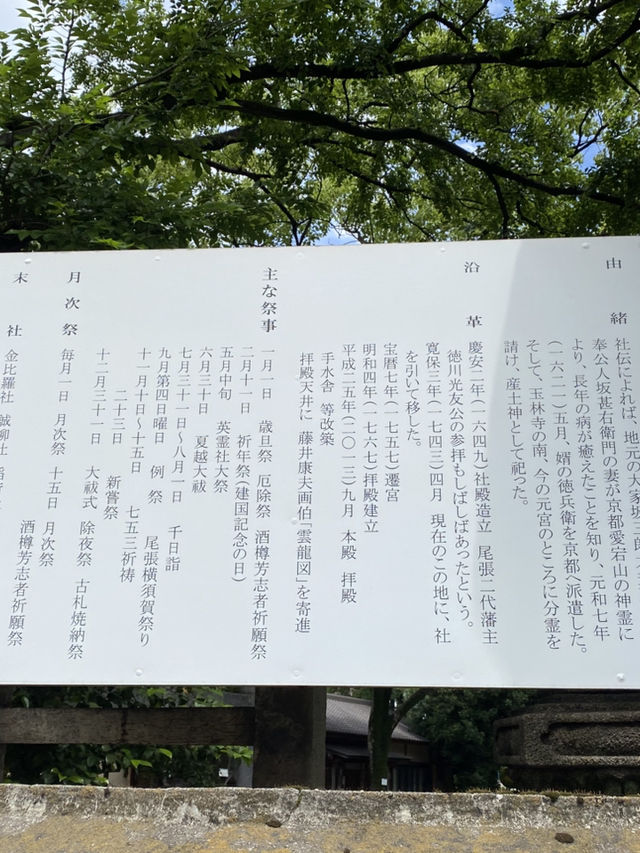 由緒
社伝によれば、地元の大家坂
奉公人坂甚右衛門の妻が京都愛宕山の神霊に
より、長年の病が癒えたことを知り、元和七年
(一六二一)五月、婿の徳兵衛を京都へ派遣した。
そして、玉林寺の南、今の元宮のところに分霊を
請け、産土神として祀った。
沿革
慶安二年(一六四九)社殿造立 尾張二代藩主
徳川光友公の参拝もしばしばあったという。
寛保三年(一七四三)四月 現在のこの地に、社
を引いて移した。
宝暦七年(一七五七)遷宮
明和四年(一七六七)拝殿建立
平成二五年(二〇一三)九月 本殿 拝殿
手水舎 等改築
拝殿天井に 藤井康夫画伯「雲龍図」を寄進
主な祭事
一月一日 歳旦祭 厄除祭 酒樽芳志者祈願祭
二月十一日 祈年祭(建国記念の日)
五月中旬 英霊社大祭
六月三十日 夏越大祓
七月三十一日〜八月一日 千日詣
九月第四日曜日 例祭 尾張横須賀祭り
十一月十日〜十五日 七五三祈祷
二十三日 新嘗祭
十二月三十一日 大祓式 除夜祭 古札焼納祭
月次祭
毎月一日 月次祭 十五日 月次祭
酒樽芳志者祈願祭
末社
金比羅社 誠柳社